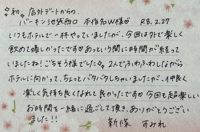 ㊗ 店外デートからの、
バーキン@池袋西口 不倫知W様が R8.2.27
いつもホテルで一杯やっていましたが、今回はタトで楽しく
飲めて嬉しかったです♡あっという間に時間が経って
いましたね!ごちそう様でした♡2人でふわふわしながら
ホテルに向かって、ちょっとバタバタしちゃいましたが、仲良く
楽しく気持ち良くなれて良かったです♡今回も超楽しい
お時間を一緒に過ごして頂き、ありがとうござい
ました!!
新條 すみれ